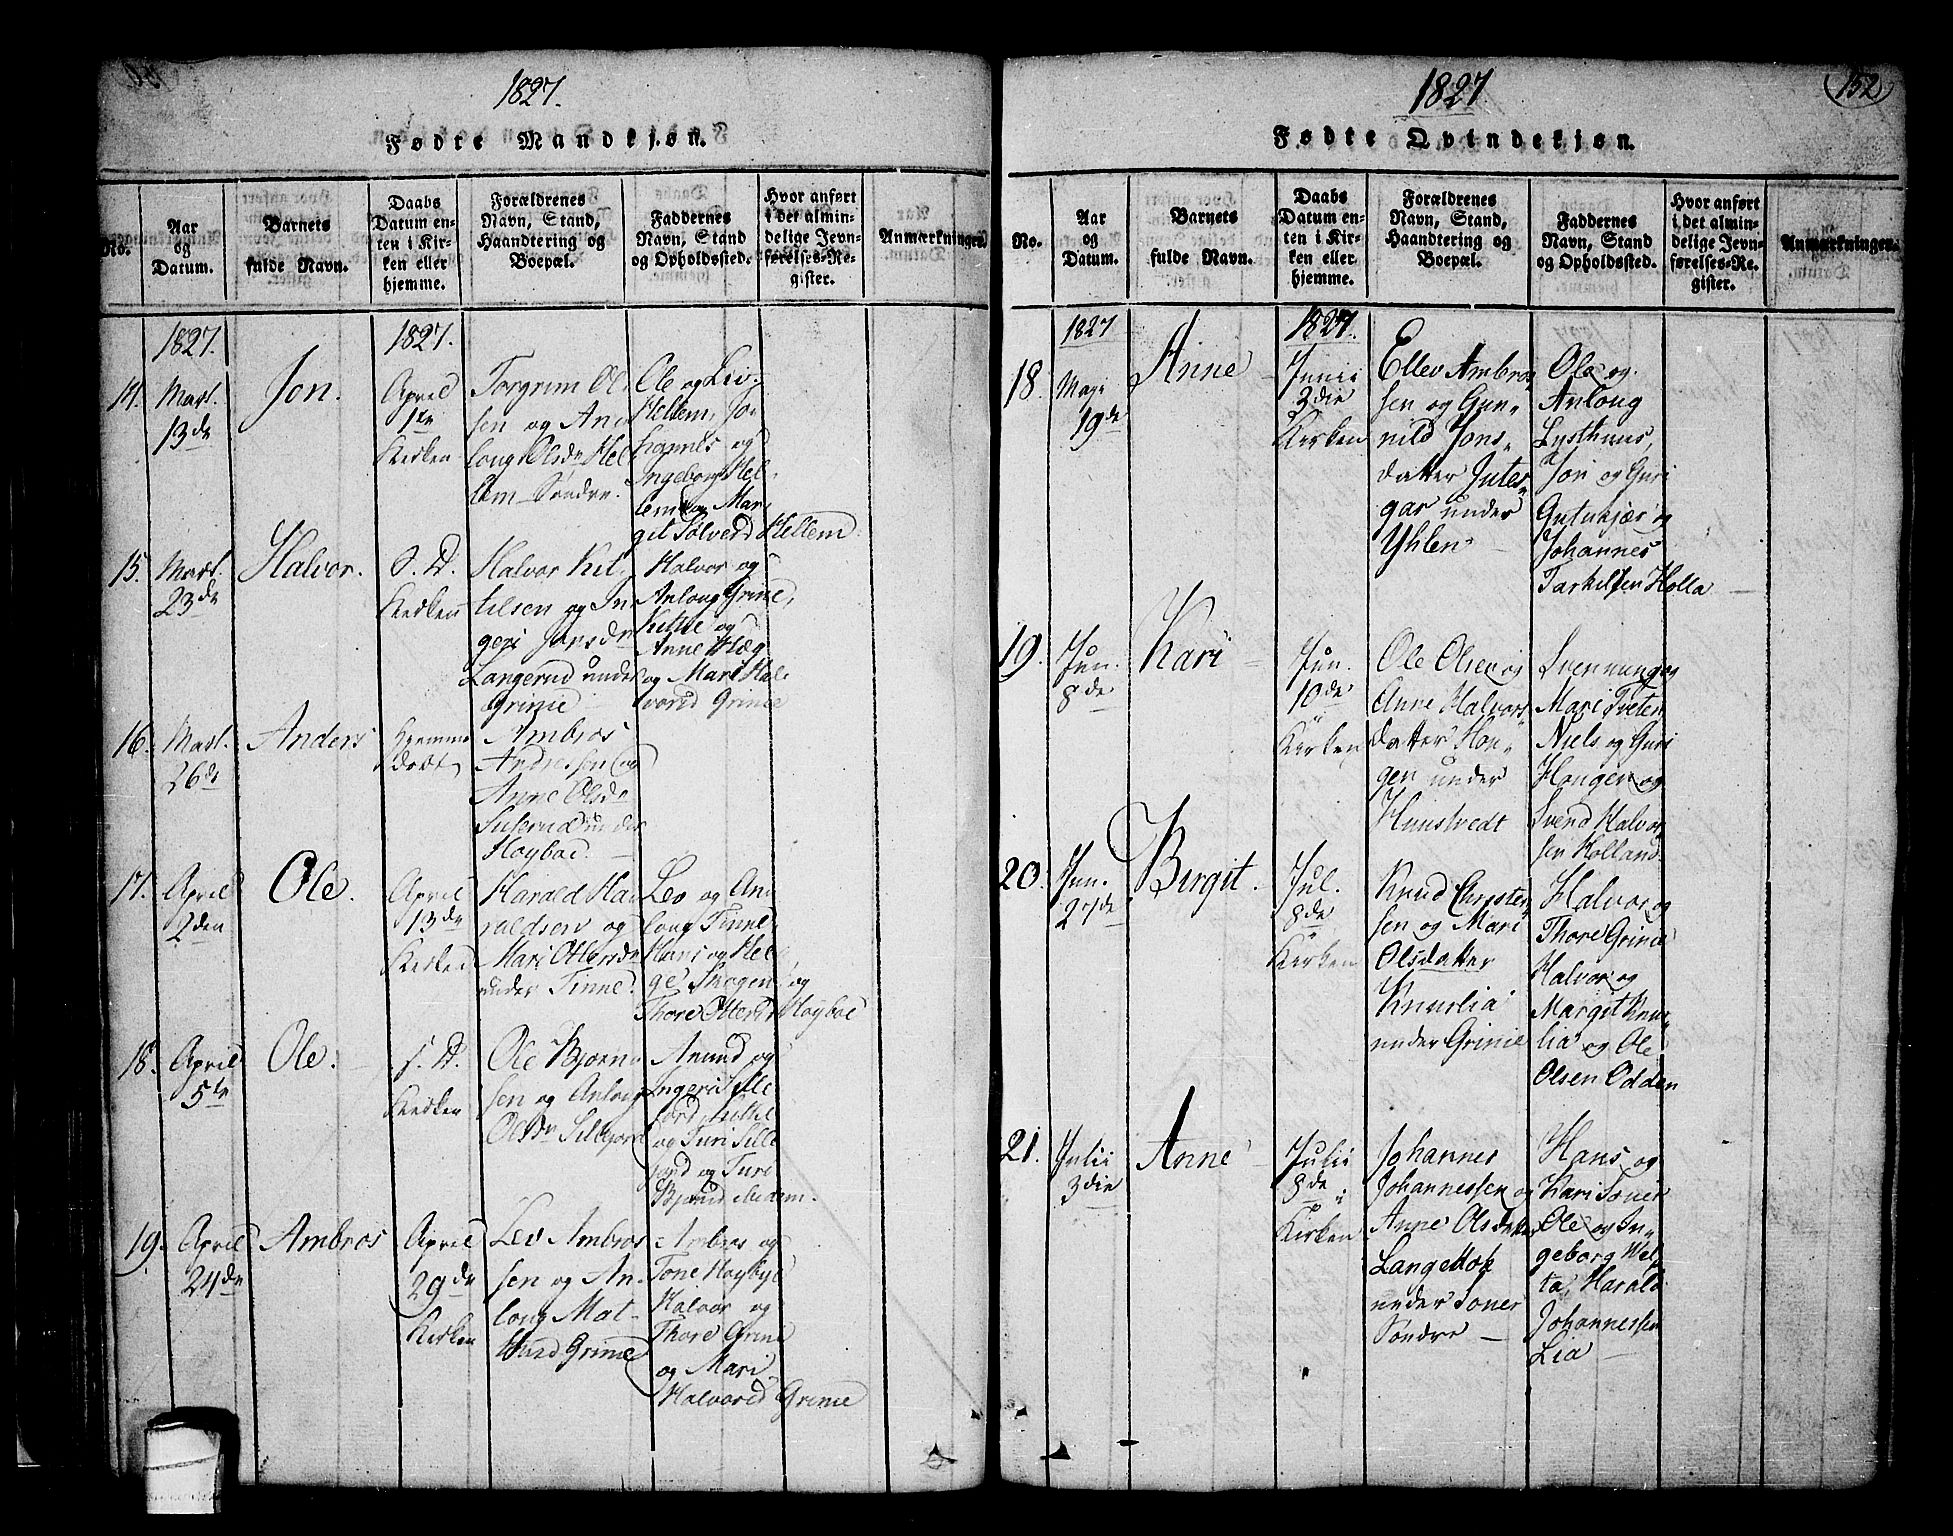 1827.
Fødte Mandkjøn.
No.
Aar
og
Datum.
Barnets
fulde Navn.
Daabs
Datum en-
ten i Kir-
ken eller
hjemme.
Forældrenes
Navn, Stand,
Haandtering og
Boepæl.
Faddernes
Navn, Stand
og Opholdssted.
Hvor anført
i det almin-
delige Jevn-
førelses-Re-
gister.
Anmærkninger.
1827.
14.
Mart.
13de
Jon.
1827.
April
1te
Kirken
Torgrim Ol-
sen og An-
loug Olsdr Hel-
lem Søndre.
Ole og Liv
Hellem, Jo-
hannes og
Ingeborg Hel-
lem og Mar-
git Sølverd Hellem
15.
Mart.
23de
Halvor.
S. D.
Kirken
Halvor Kit-
tilsen og In-
geri Jonsdr
Langerud under
Grinie
Halvor og
Anloug Grinie,
Kittil og
Anne Hæg
og Mari Hal-
vorsd Grinie
16.
Mart.
26de
Anders
Hjemme
døbt
Ambros
Andersen og
Anne Olsdr
under
Høybøe.
17.
April
2den
Ole.
April
13de
Kirken
Harald Ha-
raldsen og
Mari Ottersdr
under Tinne.
Lev og An-
loug Tinne
Hans og Hel-
ge Skogen og
Thore Ottersdr Høyboe
18.
April
5te
Ole.
S. D.
Kirken
Ole Bjørn-
sen og Anloug
Olsdr Sillejord
Amund og
Ingeri Sille-
jord,
og Turi Sille-
jord og Turi
19.
April
24de
Ambros
April
29de
Kirken
Lev Ambros-
sen og An-
loug Mat-
hisd Grinie
Ambros og
Tone Høybye
Halvor og
Thore Grinie
og Mari
Halvorsd Grinie
1827
152
Fødte Qvindekjøn.
No.
Aar
og
Datum.
Barnets
fulde Navn.
Daabs
Datum en-
ten i Kir-
ken eller
hjemme.
Forældrenes
Navn, Stand,
Haandtering og
Boepæl.
Faddernes
Navn, Stand
og Opholdssted.
Hvor anført
i det almin-
delige Jevn-
førelses-Re-
gister.
Anmærkninger.
1827
18.
Maji
19de
Anne
1827.
Junii
3die
Kirken
Ellev Ambros-
sen og Gun-
nild Jons-
datter Jutes-
gar under
Yhlen
Ole og
Anloug
Lysthuus,
Jon og Guri
og
Johannes
Tarkilsen Holla
19.
Jun.
8de
Kari
Jun.
10de
Kirken
Ole Olsen og
Anne Halvors-
datter Hou-
gen under
Huustvedt
Svennung og
Mari Tveten
Niels og Guri
Hougen og
Svend Halvor-
sen Holland.
20.
Jun.
27de
Birgit.
Jul.
8de
Kirken
Knud Christen-
sen og Mari
Olsdatter
Knurlia
under Grinie
Halvor og
Thore Grinie
Halvor og
Margit Knur-
lia og Ole
Olsen Odden
21.
Julii
3die
Anne
Julii
8de
i
Kirken
Johannes
Johannessen og
Anne Olsdatter
Langemok
under Soner
Søndre
Hans og
Kari Soner
Ole og In-
geborg Wel-
ta, Harald
Johannessen
Lia